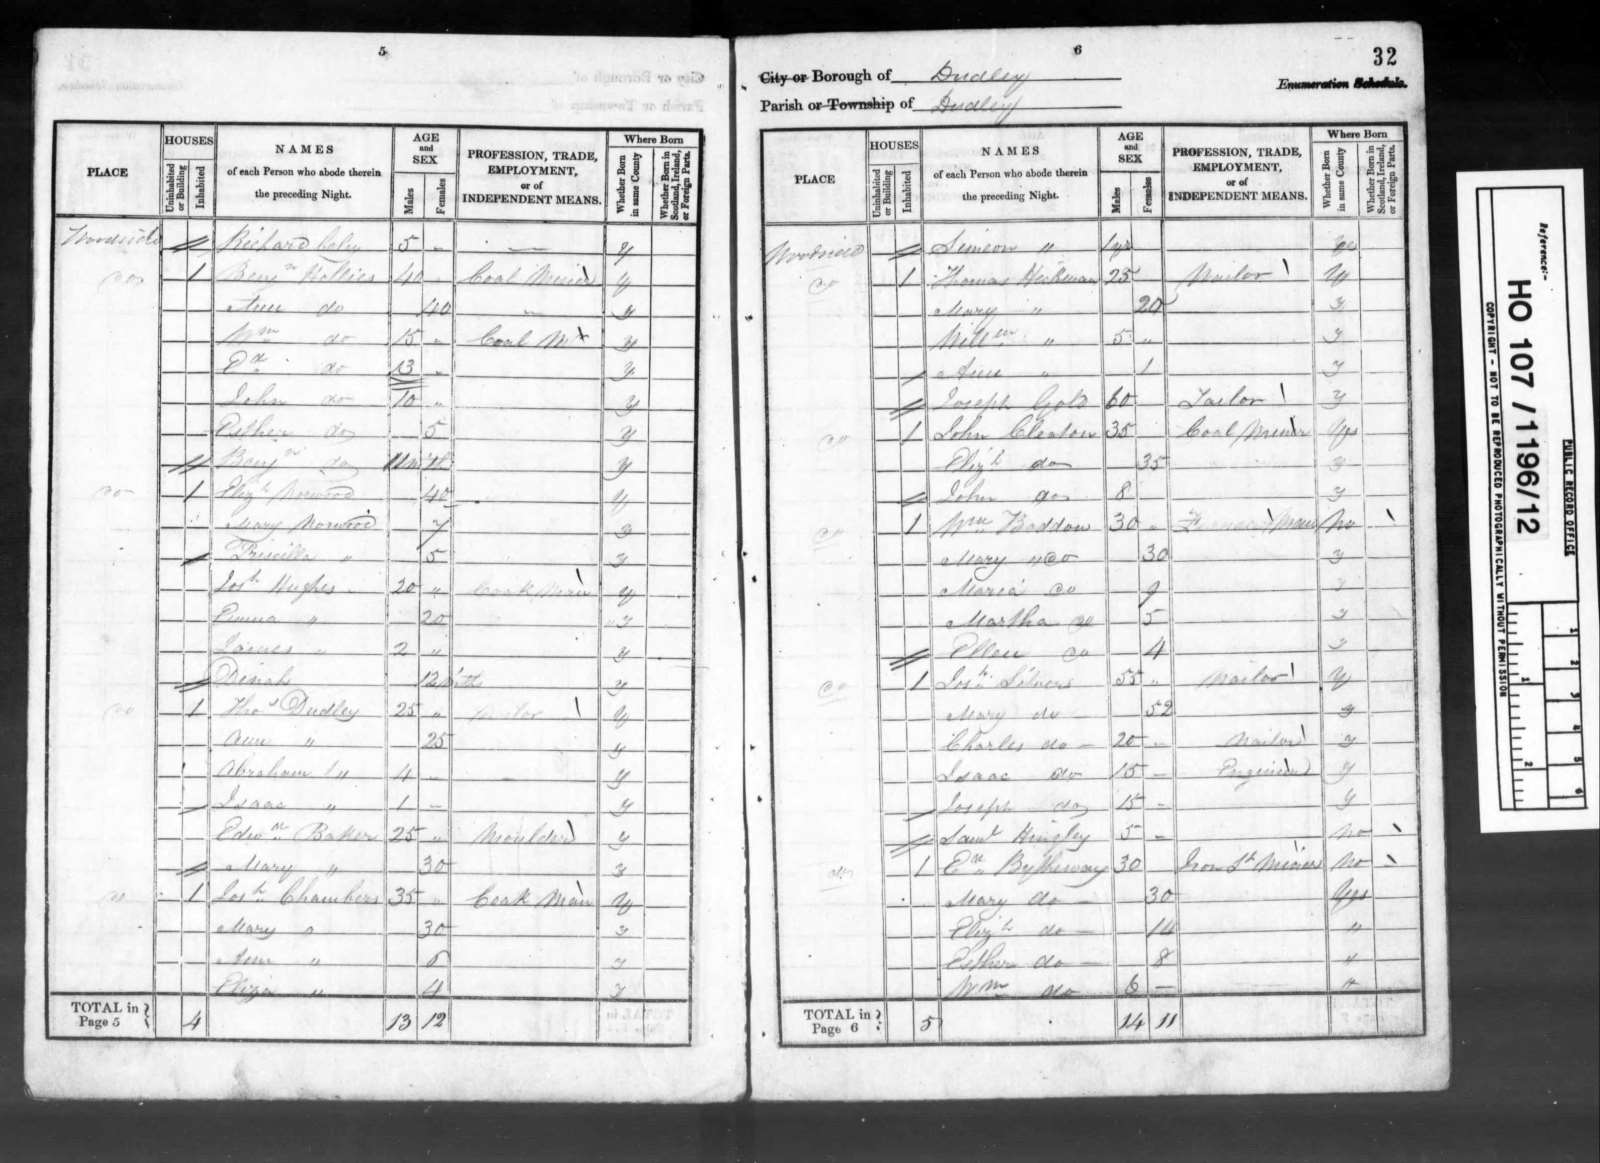 5
PLACE
HOUSES
Uninhabited or Building
Inhabited
NAMES
of each Person who abode therein
the preceding Night.
AGE
and
SEX
Males
Females
PROFESSION, TRADE,
EMPLOYMENT,
or of
INDEPENDENT MEANS.
Where Born
Whether Born in same County
Whether Born in Scotland, Ireland, or Foreign Parts.
Woodside Richard 5 " y
do 1 Benjn Hollies 40 Coal Miner y
Ann do 40 y
Wm do 15 " Coal M y
Ed do 13 " y
John do 10 " y
Esther do 5 y
Benjn do 11 m y
do 1 Elizth Norwood 40 y
Mary Norwood 7 y
Priscilla " 5 y
Josh Hughes 20 " Coak Man y
Emma " 20 y
James " 2 " y
Dinah 12 mths y
do 1 Thos Dudley 25 " Nailor y
Ann " 25 y
Abraham " 4 - y
Isaac " 1 - y
Edwn Baker 25 " Moulder y
Mary " 30 y
do 1 Josh Chambers 35 " Coak Man y
Mary " 30 y
Ann " 6 y
Eliza " 4 y
TOTAL in
Page 5 4 13 12
6
32
City or Borough of Dudley
Enumeration Schedule.
Parish or Township of Dudley
PLACE
HOUSES
Uninhabited or Building
Inhabited
NAMES
of each Person who abode therein
the preceding Night.
AGE
and
SEX
Males
Females
PROFESSION, TRADE,
EMPLOYMENT,
or of
INDEPENDENT MEANS.
Where Born
Whether Born in same County
Whether Born in Scotland, Ireland, or Foreign Parts.
Woodside Simeon " 1 yr yes
do 1 Thomas Hickman 25 Nailor y
Mary " 20 y
Willm " 5 " y
Ann " 1 y
Joseph Gold 60 Tailor y
do 1 John Cleaton 35 Coal Miner Yes
Elizh do 35 y
John do 8 y
do 1 Wm Haddon 30 " Furnace Man No
Mary do 30 y
Maria do 9 y
Martha do 5 y
Ellen do 4 y
do 1 Josh Silvers 55 " Nailor y
Mary do 52 y
Charles do - 20 - Nailor y
Isaac do 15 - Engineer y
Joseph do 15 - y
Saml Hingley 5 - No
do 1 Ed Bytheway 30 Iron St Miner No
Mary do - 30 Yes
Elizh do - 14 "
Esther do - 8 "
Wm do 6 - "
TOTAL in
Page 6 5 14 11
Reference:-
HO 107 / 1196/12
PUBLIC RECORD OFFICE
COPYRIGHT - NOT TO BE REPRODUCED PHOTOGRAPHICALLY WITHOUT PERMISSION